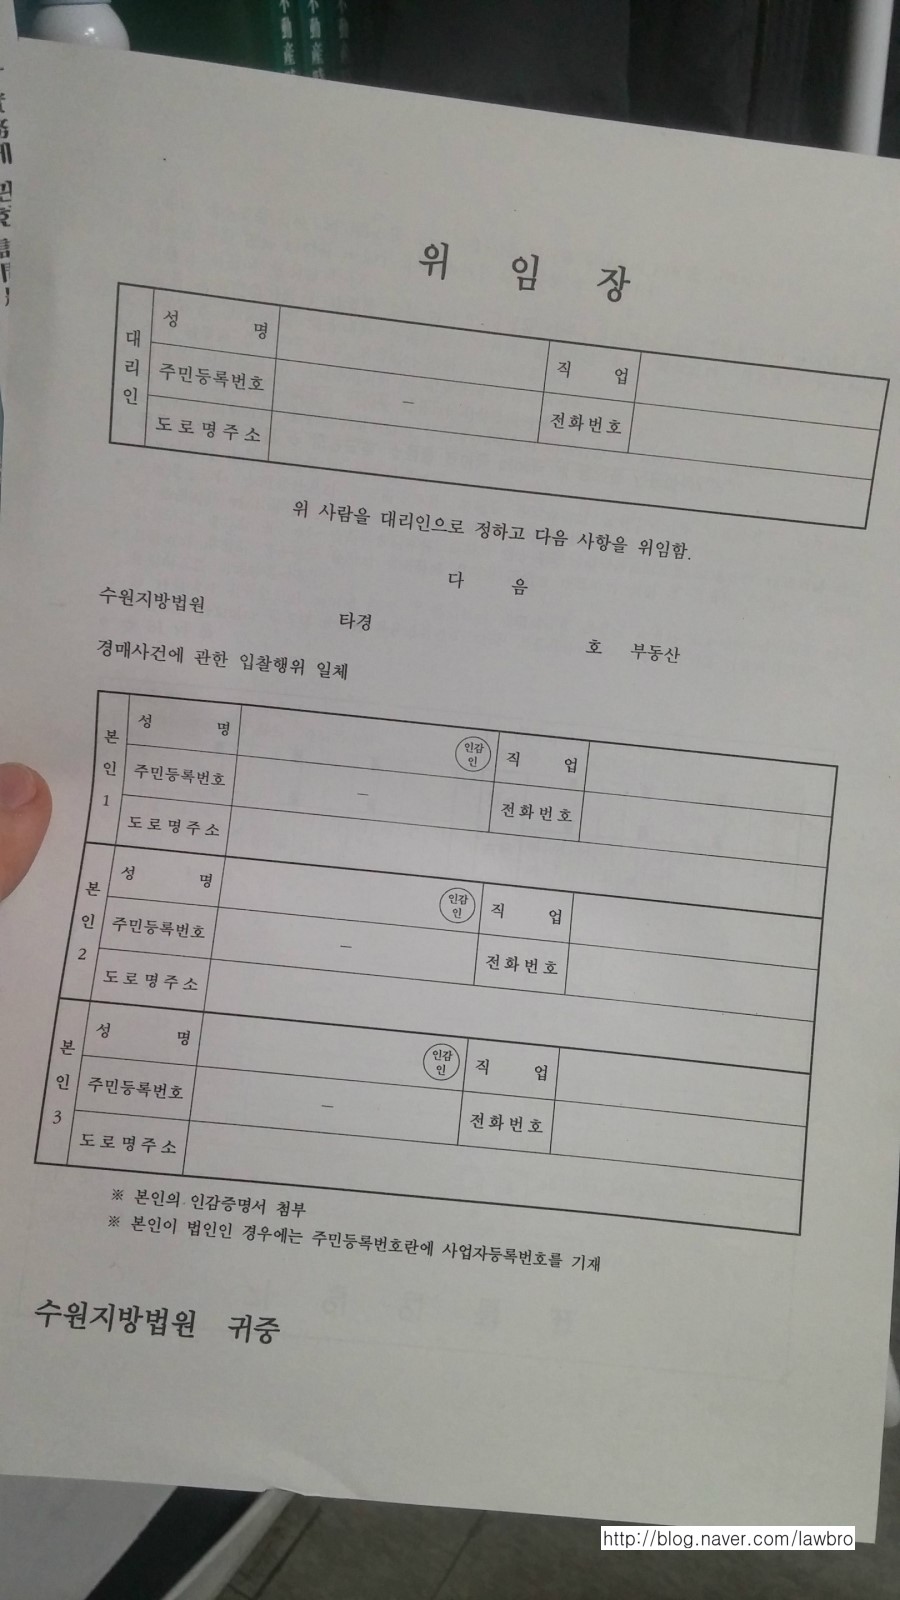 不動産
不動産
不動産
위 임 장
대리인
성 명
직 업
주민등록번호 –
전화번호
도로명주소
위 사람을 대리인으로 정하고 다음 사항을 위임함.
다 음
수원지방법원 타경 호 부동산
경매사건에 관한 입찰행위 일체
본인 1
성 명
인감
인
직 업
주민등록번호 –
전화번호
도로명주소
본인 2
성 명
인감
인
직 업
주민등록번호 –
전화번호
도로명주소
본인 3
성 명
인감
인
직 업
주민등록번호 –
전화번호
도로명주소
※ 본인의 인감증명서 첨부
※ 본인이 법인인 경우에는 주민등록번호란에 사업자등록번호를 기재
수원지방법원 귀중
http://blog.naver.com/lawbro